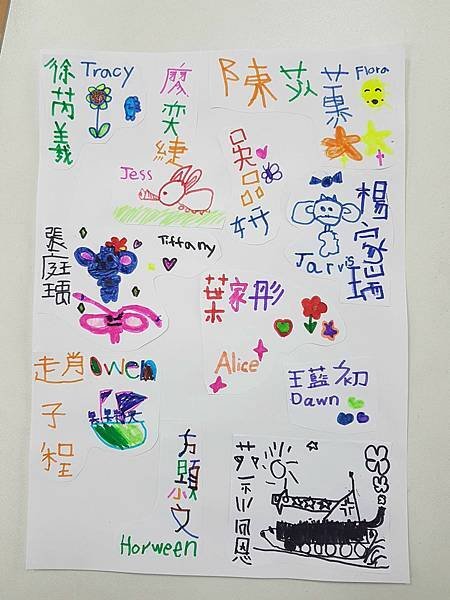 徐芮義
Tracy
廖奕緁
Jess
陳苡蓁
Flora
吳品妍
楊家瑞
Jarvis
張庭瑀
Tiffany
葉家彤
Alice
趙子程
Owen
王藍初
Dawn
方顥文
Horween
恩